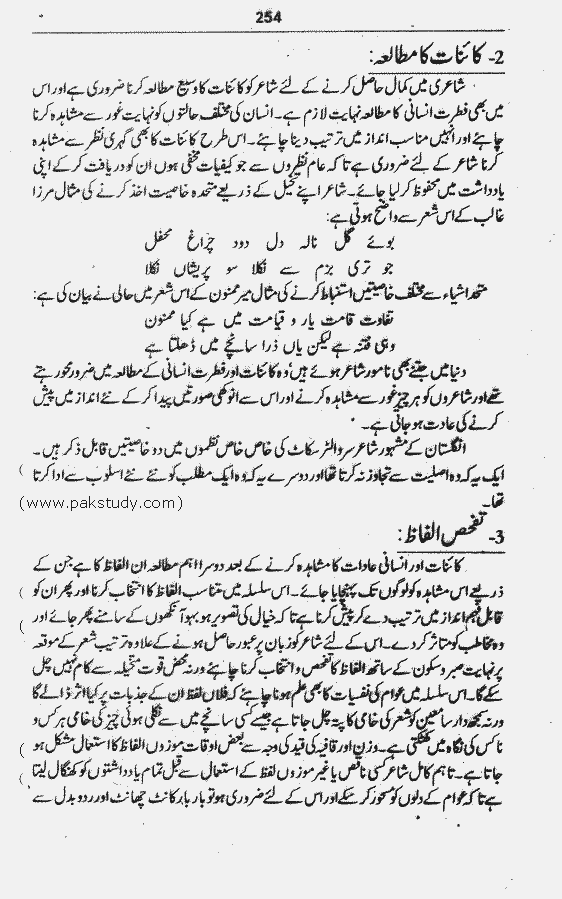 254
2- کائنات کا مطالعہ:
شاعری میں کمال حاصل کرنے کے لئے شاعر کو کائنات کا وسیع مطالعہ کرنا ضروری ہے اور اس
میں بھی فطرت انسانی کا مطالعہ نہایت لازم ہے۔ انسان کی مختلف حالتوں کو نہایت غور سے مشاہدہ کرنا
چاہئے اور انہیں مناسب انداز میں ترتیب دینا چاہئے۔ اس طرح کائنات کا بھی گہری نظر سے مشاہدہ
کرنا شاعر کے لئے ضروری ہے تاکہ عام نظروں سے جو کیفیات مخفی ہوں ان کو دریافت کر کے اپنی
یادداشت میں محفوظ کر لیا جائے۔ شاعر اپنے تخیل کے ذریعے متحدہ خاصیت اخذ کرنے کی مثال مرزا
غالب کے اس شعر سے واضح ہوتی ہے:
بوئے گل نالہ دل دود چراغ محفل
جو تری بزم سے نکلا سو پریشاں نکلا
متحد اشیاء سے مختلف خاصیتیں استنباط کرنے کی مثال میر ممنون کے اس شعر میں حالی نے بیان کی ہے:
تفاوت قامت یار و قیامت میں ہے کیا ممنون
وہی فتنہ ہے لیکن یاں ذرا سانچے میں ڈھلتا ہے
دنیا میں جتنے بھی نامور شاعر ہوئے ہیں' وہ کائنات اور فطرت انسانی کے مطالعہ میں ضرور محو رہتے
تھے اور شاعروں کو ہر چیز غور سے مشاہدہ کرنے اور اس سے انوکھی صورتیں پیدا کر کے نئے انداز میں پیش
کرنے کی عادت ہو جاتی ہے۔
انگلستان کے مشہور شاعر سر والٹر سکاٹ کی خاص خاص نظموں میں دو خاصیتیں قابل ذکر ہیں۔
ایک یہ کہ وہ اصلیت سے تجاوز نہ کرتا تھا اور دوسرے یہ کہ وہ ایک مطلب کو نئے نئے اسلوب سے ادا کرتا
تھا۔
(www.pakstudy.com)
3- تفحص الفاظ:
کائنات اور انسانی عادات کا مشاہدہ کرنے کے بعد دوسرا اہم مطالعہ ان الفاظ کا ہے جن کے
ذریعے اس مشاہدہ کو لوگوں تک پہنچایا جائے۔ اس سلسلہ میں متناسب الفاظ کا انتخاب کرنا اور پھر ان کو
قابل فہم انداز میں ترتیب دے کر پیش کرنا ہے تاکہ خیال کی تصویر ہو بہو آنکھوں کے سامنے پھر جائے اور
وہ مخاطب کو متاثر کر دے۔ اس کے لئے شاعر کو زبان پر عبور حاصل ہونے کے علاوہ ترتیب شعر کے موقعہ
پر نہایت صبر و سکون کے ساتھ الفاظ کا تفحص و انتخاب کرنا چاہئے ورنہ محض قوت متخیلہ سے کام نہیں چل
سکے گا۔ اس سلسلہ میں عوام کی نفسیات کا بھی علم ہونا چاہئے کہ فلاں لفظ ان کے جذبات پر کیا اثر ڈالے گا
ورنہ سمجھ دار سامعین کو شعر کی خامی کا پتہ چل جاتا ہے جیسے کسی سانچے میں سے نکلی ہوئی چیز کی خامی ہر کس و
ناکس کی نگاہ میں کھٹکتی ہے۔ وزن اور قافیہ کی قید کی وجہ سے بعض اوقات موزوں الفاظ کا استعمال مشکل ہو
جاتا ہے۔ تاہم کامل شاعر کسی ناقص یا غیر موزوں لفظ کے استعمال سے قبل تمام یادداشتوں کو کھنگال لیتا
ہے تاکہ عوام کے دلوں کو مسحور کر سکے اور اس کے لئے ضروری ہو تو بار بار کانٹ چھانٹ اور ردوبدل سے